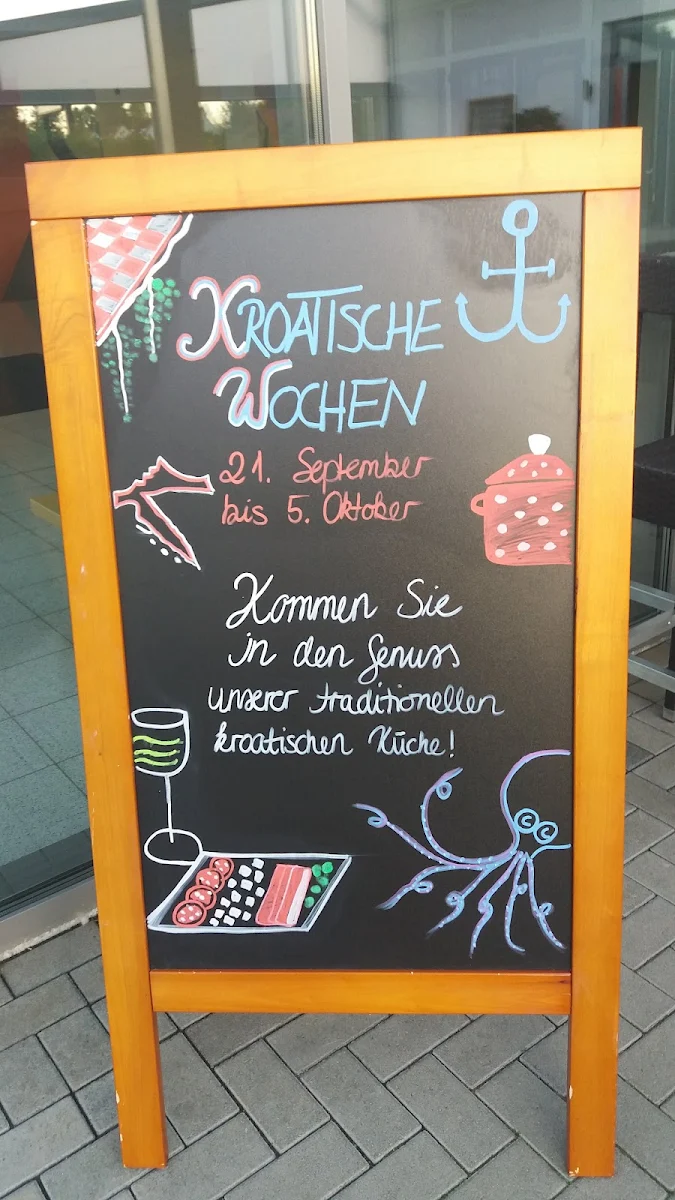 KROATISCHE
WOCHEN
21. September
bis 5. Oktober
Kommen Sie
in den Genuss
unserer traditionellen
kroatischen Küche!